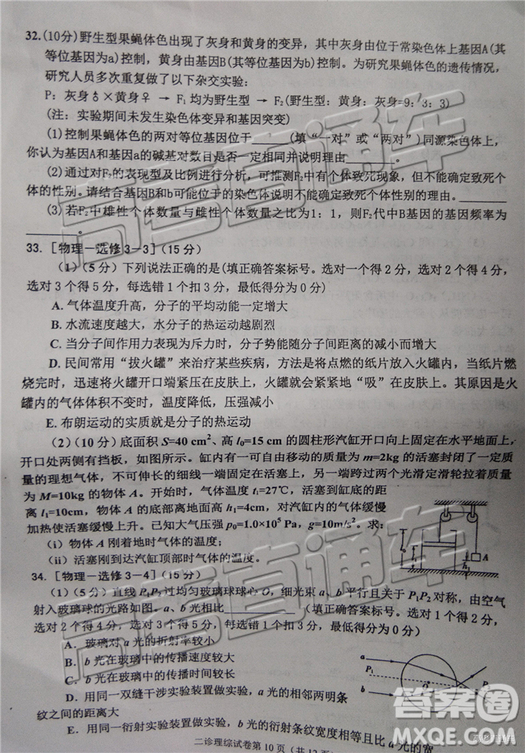 32.(10分)野生型果蝇体色出现了灰身和黄身的变异，其中灰身由位于常染色体上基因A(其
等位基因为a)控制，黄身由基因B(其等位基因为b)控制。为研究果蝇体色的遗传情况，
研究人员多次重复做了以下杂交实验：
P：灰身♂×黄身♀ → F₁均为野生型 → F₂野生型：灰身：黄身=9：3：3)
(注：实验期间未发生染色体变异和基因突变)
(1)控制果蝇体色的两对等位基因位于____(填“一对”或“两对”)同源染色体，
你认为基因A和基因a的碱基对数目是否一定相同并说明理由
(2)通过对F₂的表现型及比例进行分析，可推测F₂中有个体致死现象，但不能确定致死个
体的性别。请结合基因B(b)可能的染色体说明不能确定个体性别的理由。
(3)若F₂中雄性个体数量与雌性个体数量之比为1：1，则F₂代中B基因的基因频率为
33.［物理－选修3－3］(15分)
(1)(5分)下列说法正确的是(填正确答案标号。选对一个得2分，选对2个得4分，
选对3个得5分，每选错1个扣3分，最低得分为0分)
A. 气体温度升高，分子的平均动能一定增大
B. 水流速度越大，水分子的热运动越剧烈
C. 当分子间作用力表现为斥力时，分子势能随分子间距离的减小而增大
D. 民间常用“拔火罐”来治疗某些疾病，方法是将点燃的纸片放入火罐内，当纸片燃
烧完时，迅速将火罐开口端紧压在皮肤上，火罐就会紧紧地“吸”在皮肤上。其原因是火
罐内的气体体积不变时，温度降低，压强减小
E. 布朗运动的实质就是分子的热运动
(2)(10分)底面积S=40 cm²、高l₀=15 cm的圆柱形汽缸开口向上固定在水平地面上，
开口处两侧有挡板，如图所示。缸内有一可自由移动的质量为m=2kg的活塞封闭了一定质
量的理想气体，不可伸长的细线一端固定在活塞上，另一端跨过两个光滑定滑轮拉着质量
为M=10kg的物体A。开始时，气体温度t₁=27℃，活塞到缸底的距
离l₁=10cm，物体A的底部离地面高
加热使活塞缓慢上升。已知大气压强p₀=1.0×10⁵ Pa，g=10m/s²。求：
(i) 物体A刚着地时气体的温度；
(ii) 活塞刚到达汽缸顶部时气体的温度。
A
h₁
34.［物理－选修3－4］(15分)
(1)(5分)直线P₁P₂过均匀玻璃球球心O，细光束a、b平行且关于P₁P₂对称，由空气
射入玻璃球的光路如图。a、b光相比
选对2个得4分，选对3个得5分。每选错1个扣3分，最低得分为0分)
A. 玻璃对a光的折射率较小
B. b光在玻璃中的传播速度较大
C. b光在玻璃中的传播
D. 用同一双缝干涉实验装置做实验，a光的相邻两条明
纹之间的距离大
E. 用同一衍射实验装置做实验，b光的衍射条纹宽度相等且比a光的窄
a
P₁
b
O
P₂
二诊理综试卷第10页
高考直通车
高考直通车